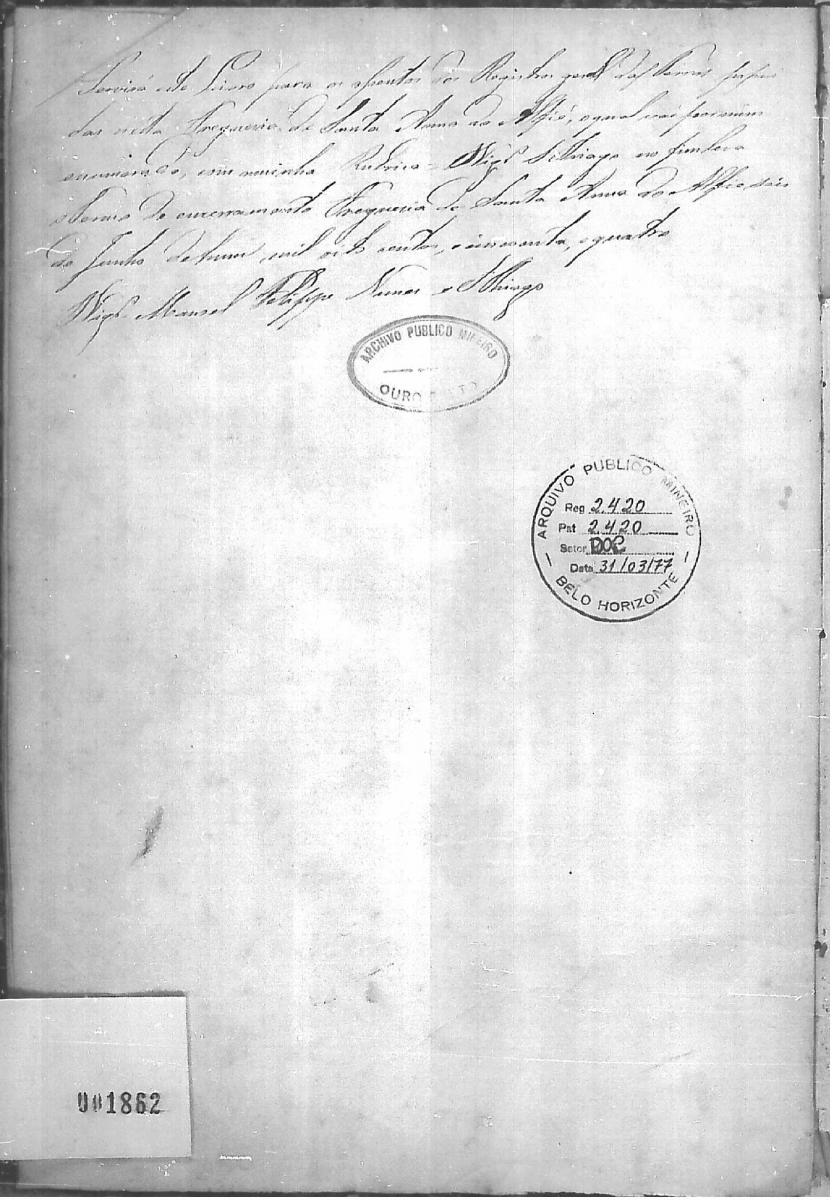 Servirá este Livro para os apontos dos Registros geral das Terras possui
das nesta Freguezia de Santa Anna do Alfié, o qual vai por mim
enumerado, com minha Rubrica = Vigr.º S.Thiago no fim leva
o Termo de encerramento Freguezia de Santa Anna do Alfié
de Junho de hum mil oito centos, e sincoenta, e quatro
Vigr.º Manoel Felippe Nunes e S.Thiago
ARCHIVO PUBLICO MINEIRO
OURO PRETO
ARQUIVO PUBLICO MINEIRO
Reg 2.420
Pat 2.420
Setor DOC
Data 31/03/77
BELO HORIZONTE
001862